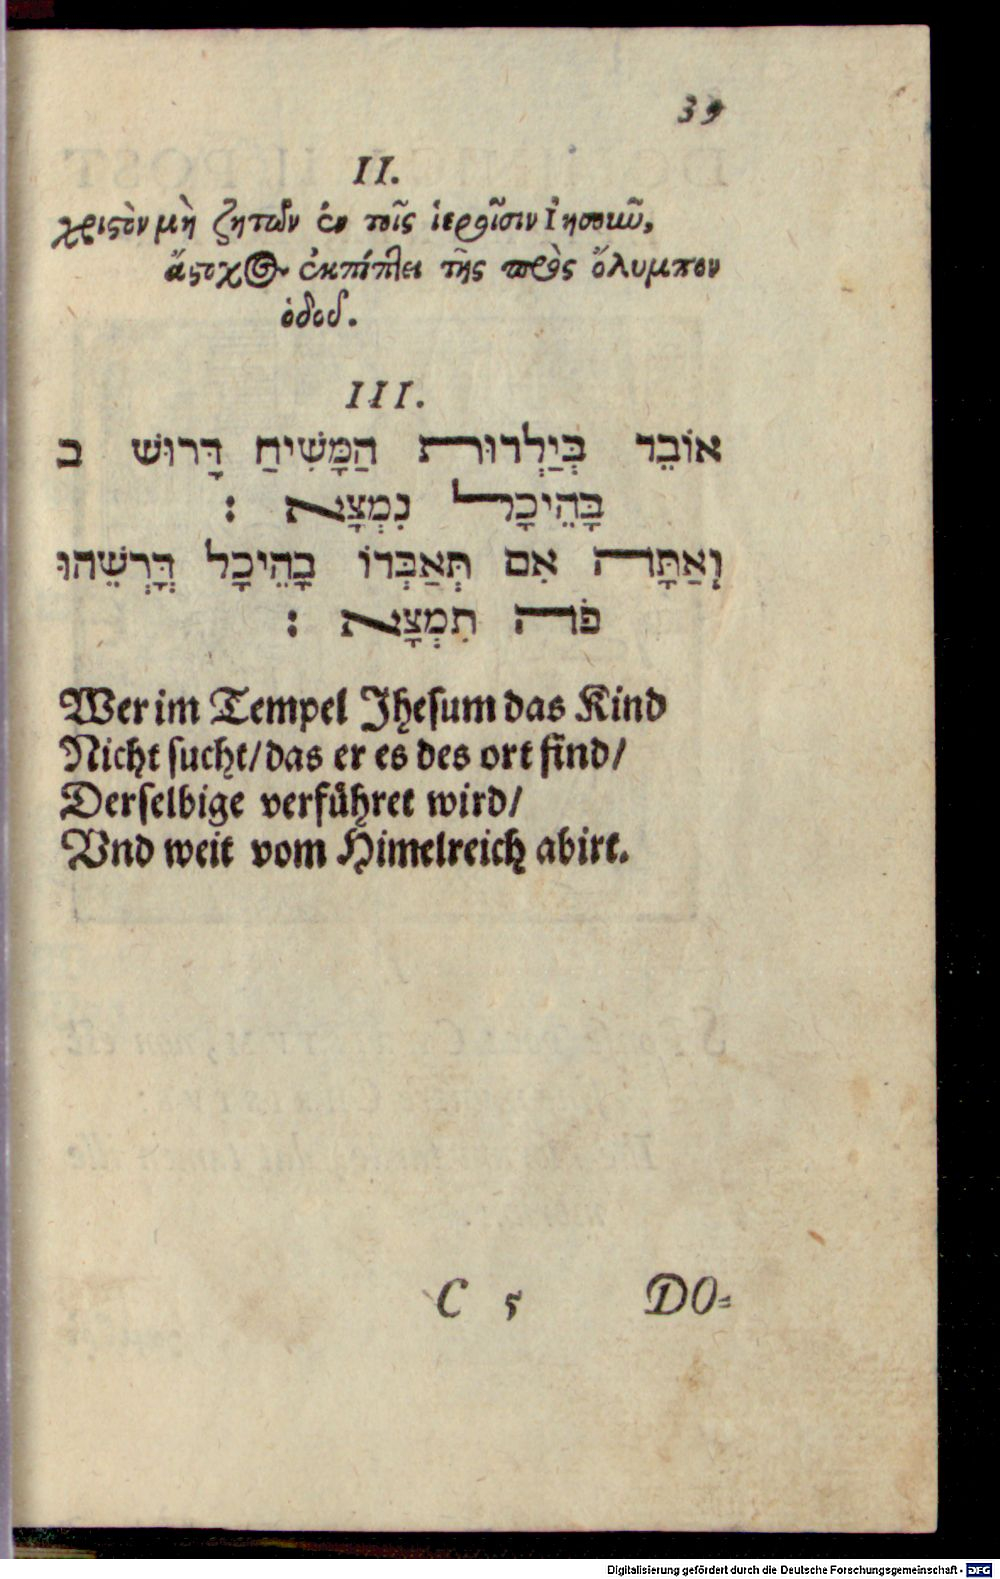 39
II.
χριστὸν μὴ ζητῶν ἐν τοῖς ἱεροῖσιν Ἰησοῦν,
ἄστοχος ἐκπίπτει τῆς πρὸς ὄλυμπον
ὁδοῦ.
III.
אוֹבֵד בְּיַלְדוּת הַמָּשִׁיחַ דָּרוּשׁ ב
בָּהֵיכָל נִמְצָא :
וְאַתָּה אִם תְּאַבְּדוֹ בָהֵיכָל דָּרְשֵׁהוּ
פֹּה תִמְצָא :
Wer im Tempel Jhesum das Kind
Nicht sucht/ das er es des ort find/
Derselbige verführet wird/
Vnd weit vom Himelreich abirt.
C 5 DO-
Digitalisierung gefördert durch die Deutsche Forschungsgemeinschaft - DFG